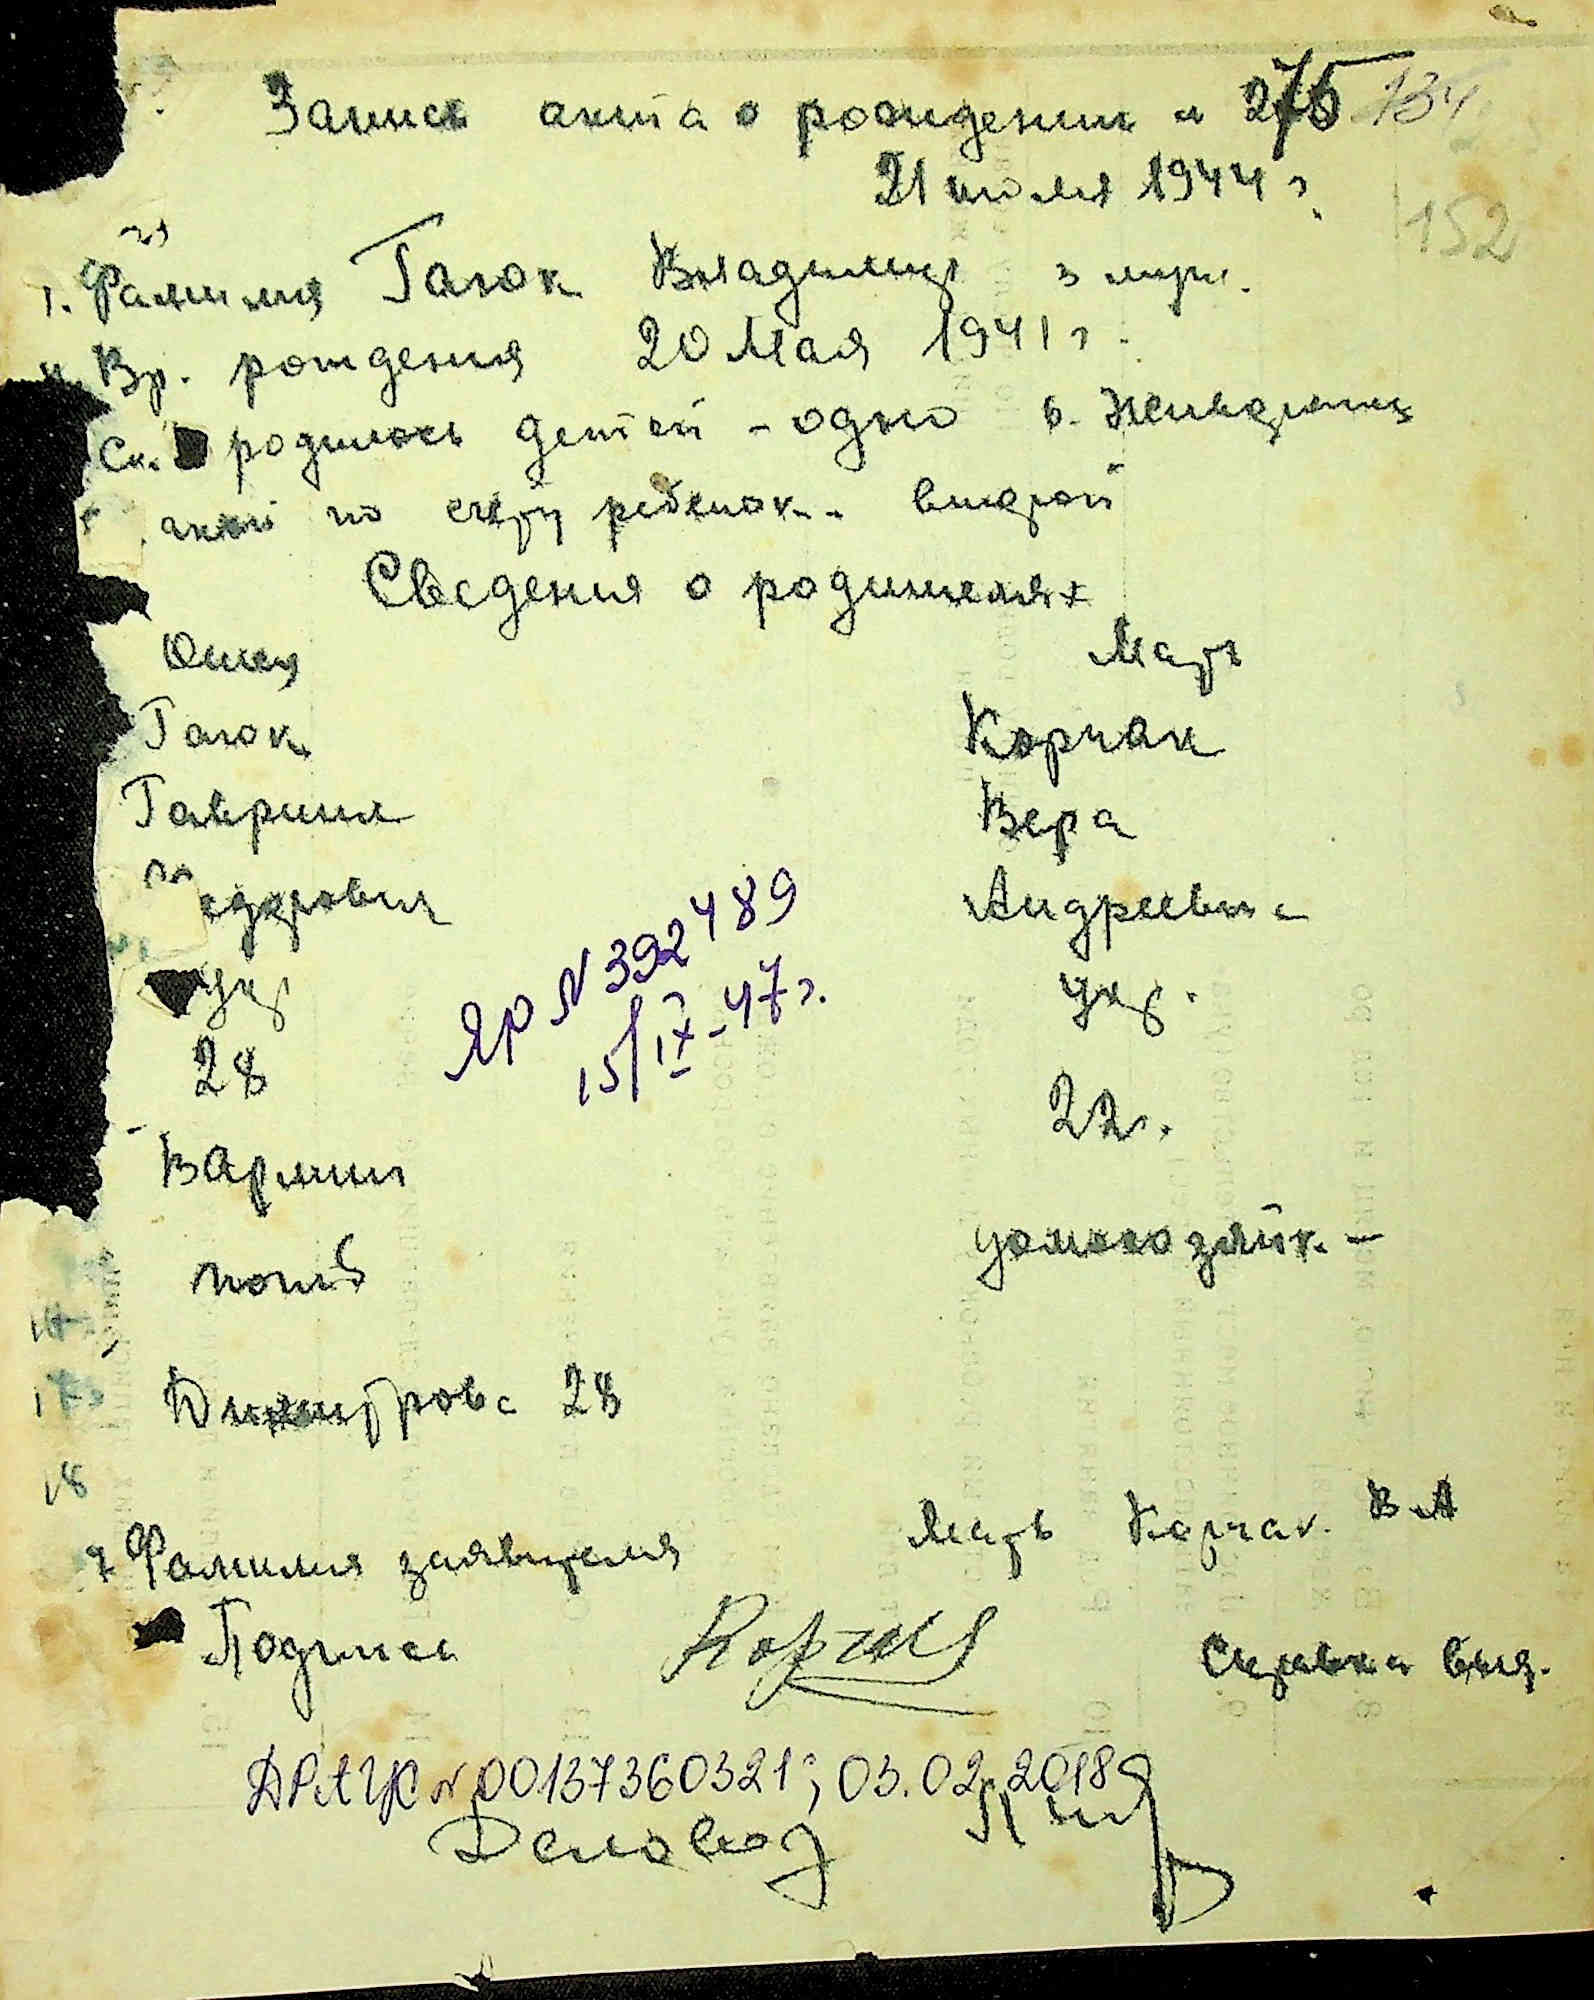 Запись акта о рождении № 275 134
21 июля 1944 г.
152
1. Фамилия Гаюк Владимир з мери.
Вр. рождения 20 Мая 1941 г.
Ск. родилось детей - одно в. Живорожд
акой по счету ребенок.. второй
Сведения о родителях
Отец Мать
Гаюк Корчак
Гавриил Вера
едорович Андреевна
укр укр.
28 22 г.
В Армии
погиб домохозяйк. -
17
18
Димитрова 28
7 Фамилия заявителя Мать Корчак. В А
Подпись Корчак Справка выд.
ЯР № 392489
15/IX-47 г.
ДРАЦС № 00137360321; 03.02.2018